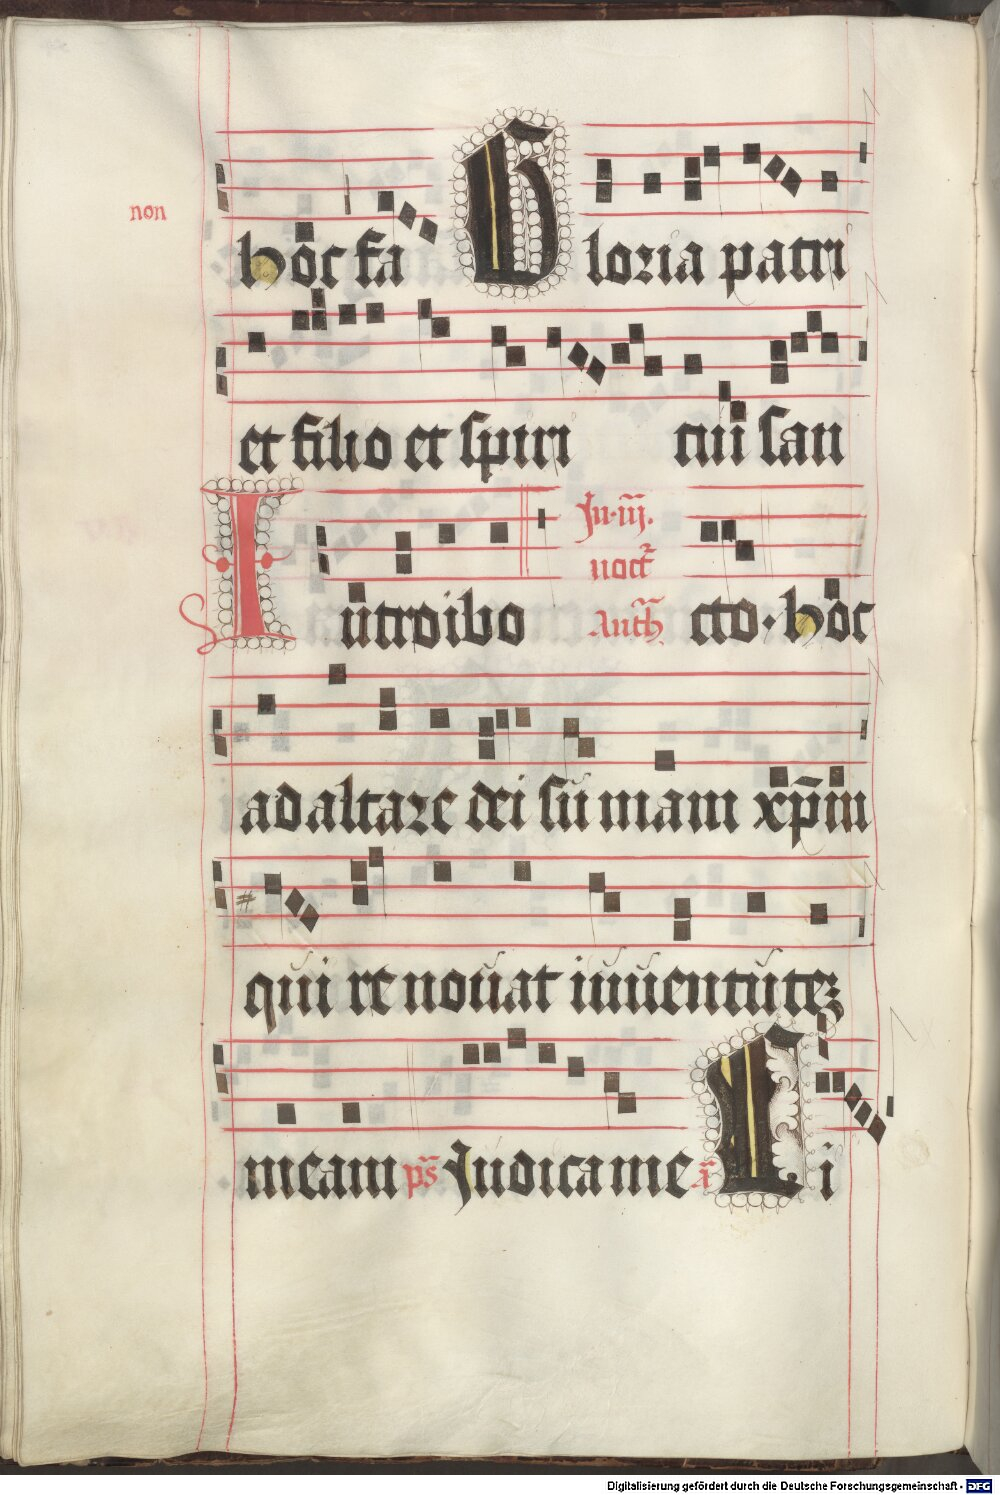 non
hoc fa Gloria patri
et filio et spiri tui san
In·iij.
noct̄
Introibo Anth̄ cto· hoc
ad altare dei su mam xp̄m
qui re nouat iuuentuteꝫ
meam p̄s Judica me R̄ Ni
Digitalisierung gefördert durch die Deutsche Forschungsgemeinschaft - DFG